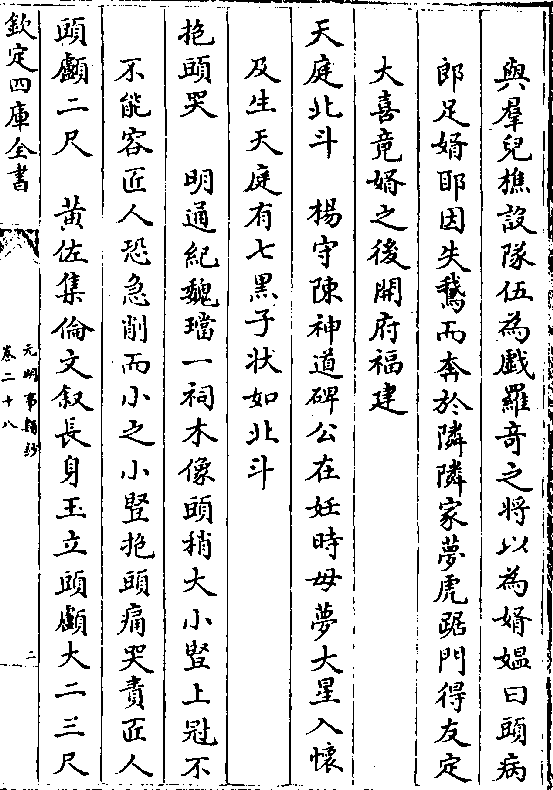 與羣兒樵設隊伍為戲羅竒之将以為婿媼曰頭病
郎足婿耶因失鵞而奔於隣隣家夢虎踞門得友定
大喜竟婿之後開府福建
天庭北斗　楊守陳神道碑公在妊時母夢大星入懷
及生天庭有七黒子状如北斗
抱頭哭　明通紀魏璫一祠木像頭稍大小豎上冠不
不能容匠人恐急削而小之小豎抱頭痛哭責匠人
頭顱二尺　黄佐集倫文叙長身玉立頭顱大二三尺
欽定四庫全書
元明事類鈔
卷二十八
二